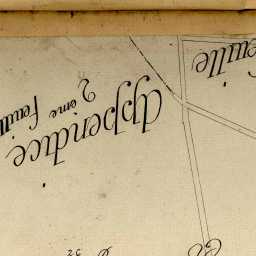 Appendice
2 eme feuill
euille